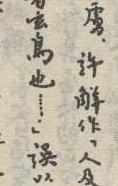 虜、許解作「人及
玄鳥也……」誤以